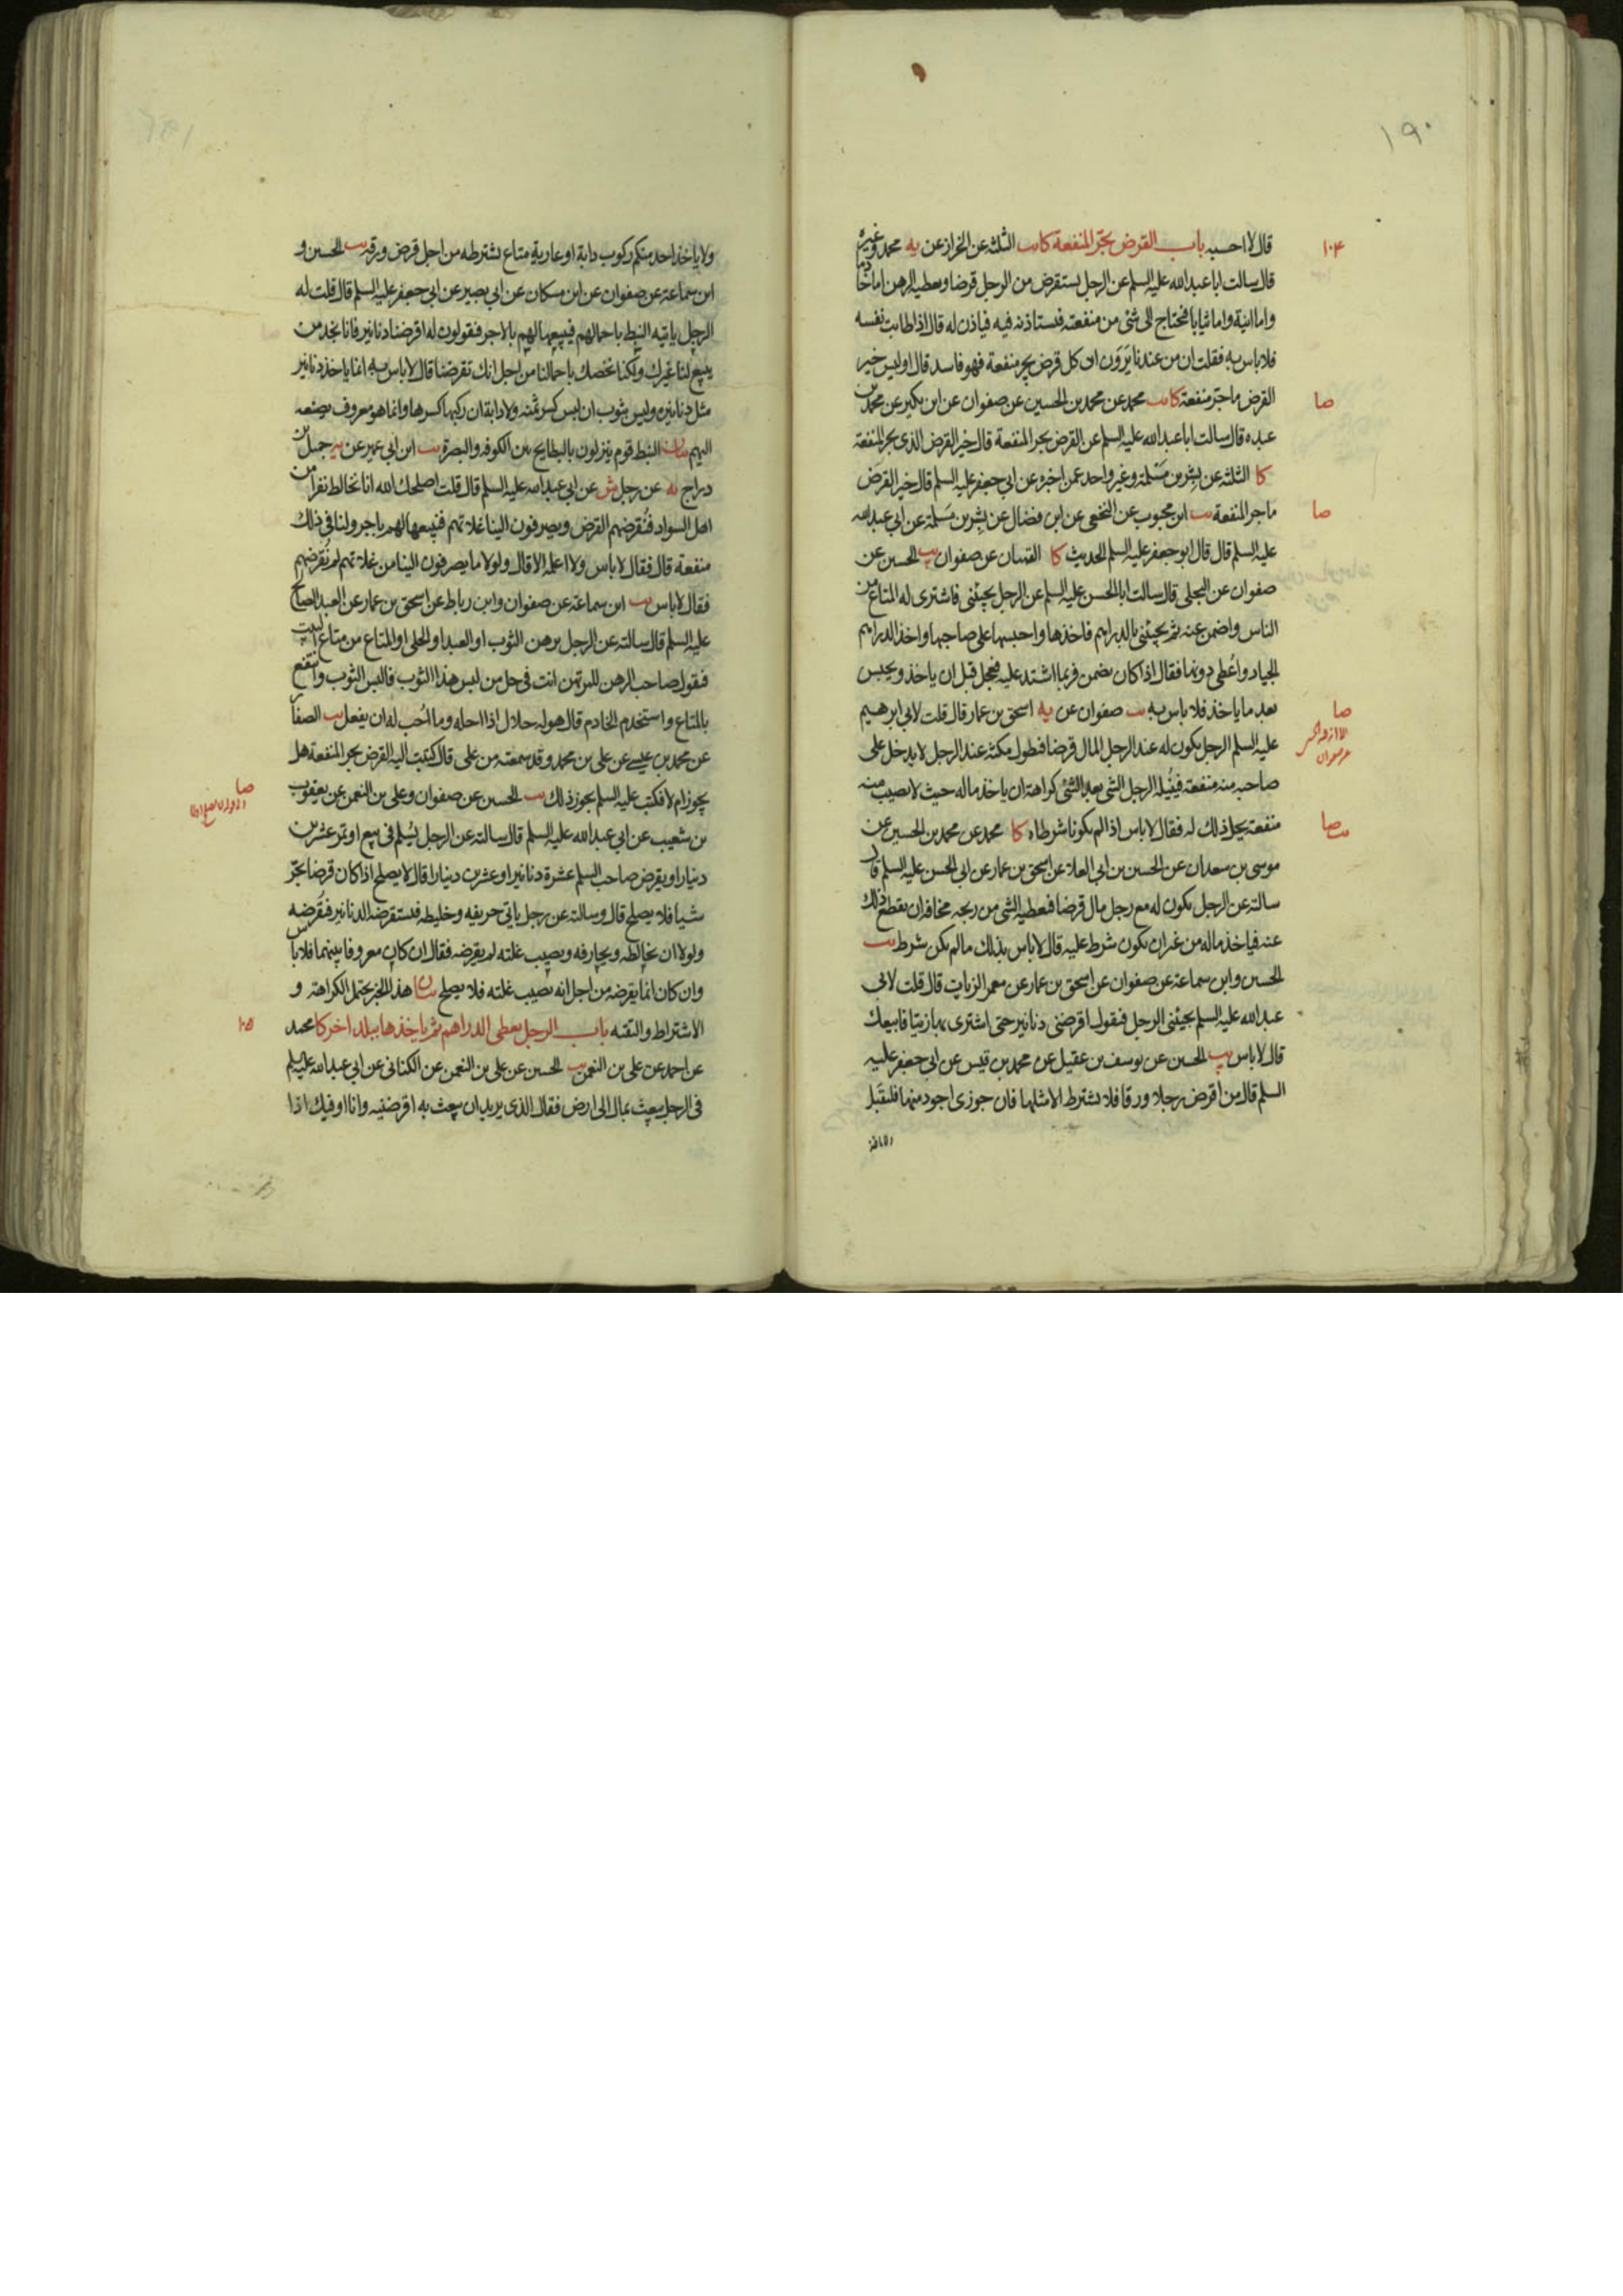 ١٩٠
١٠٤
قال لا احسبه باب القرض يجر المنفعة كا يب الثلثة عن الخراز عن يه محمد وغيره
قال سالت ابا عبد الله عليه السلم عن الرجل يستقرض من الرجل قرضا ويعطيه الرهن اما خادما
واما انية واما ثيابا فيحتاج الى شئ من منفعته فيستاذنه فيه فياذن له قال اذا طابت نفسه
فلا باس به فقلت ان من عندنا يَرَوَن ان كل قرض يجر منفعة فهو فاسد قال اوليس خير
القرض ما جر منفعة كا يب محمد عن محمد بن الحسين عن صفوان عن ابن بكير عن محمد بن
صا
عبده قال سالت ابا عبد الله عليه السلم عن القرض يجر المنفعة قال خير القرض الذى يجر المنفعة
كا الثلثة عن بشر بن مَسْلَمة وغير واحد عمن اخبره عن ابي جعفر عليه السلم قال خير القرض
ما جر المنفعة يب ابن محبوب عن النخعى عن ابن فضال عن بشر بن مَسلمة عن ابي عبد الله
صا
عليه السلم قال قال ابو جعفر عليه السلم الحديث كا القميان عن صفوان يب الحسين عن
صفوان عن البجلى قال سالت ابا الحسن عليه السلم عن الرجل يجيئنى فاشترى له المتاع من
الناس واضمن عنه ثم يجيئنى بالدراهم فاخذها واحبسها على صاحبها واخذ الدراهم
الجياد واعُطى دونها فقال اذا كان يضمن فربما اشتد عليه فعجل قبل ان ياخذ ويحبس
بعد ما ياخذ فلا باس به يب صفوان عن يه اسحق بن عمار قال قلت لابي ابرهيم
صا
عليه السلم الرجل يكون له عند الرجل المال قرضا فيطول مكثه عند الرجل لا يدخل على
صاحبه منه منفعة فيُنيله الرجل الشئ بعد الشئ كراهة ان ياخذ ماله حيث لا يصيب منه
منفعة يحل ذلك له فقال لا باس اذا لم يكونا شرطاه كا محمد عن محمد بن الحسين عن
يب صا
موسى بن سعدان عن الحسين بن ابي العلا عن اسحق بن عمار عن ابي الحسن عليه السلم قال
سالته عن الرجل يكون له مع رجل مال قرضا فيعطيه الشئ من ربحه مخافة ان يقطع ذلك
عنه فياخذ ماله من غير ان يكون شرط عليه قال لا باس بذلك ما لم يكن شرط يب
الحسين وابن سماعة عن صفوان عن اسحق بن عمار عن معمر الزيات قال قلت لابي
عبد الله عليه السلم يجيئنى الرجل فيقول اقرضنى دنانير حتى اشترى بها زيتا فابيعك
قال لا باس يب الحسين عن يوسف بن عقيل عن محمد بن قيس عن ابي جعفر عليه
السلم قال من اقرض رجلا ورقا فلا يشترط الا مثلها فان جوزى اجود منها فليقبل
ولا ياخذ احد منكم ركوب دابة او عارية متاع يشترطه من اجل قرض ورقه يب الحسين و
ابن سماعة عن صفوان عن ابن مسكان عن ابي بصير عن ابي جعفر عليه السلم قال قلت له
الرجل ياتيه النبط باحمالهم فيبيعها لهم بالاجر فيقولون له اقرضنا دنانير فانا نجد من
يبيع لنا غيرك ولكنا نخصك باحمالنا من اجل انك تقرضنا قال لا باس به انما ياخذ دنانير
مثل دنانيره وليس بثوب ان لبس كسر ثمنه ولا دابة ان ركبها كسرها وانما هو معروف يصنعه
اليهم بيان النبط قوم ينزلون بالبطايح بين الكوفة والبصرة يب ابن ابي عمير عن يه جميل بن
دراج يه عن رجل ش عن ابي عبد الله عليه السلم قال قلت اصلحك الله انا نخالط نفرا من
اهل السواد فنُقرضهم القرض ويصرفون الينا غلاتهم فنبيعها لهم باجر ولنا فى ذلك
منفعة قال فقال لا باس ولا اعلمه الا قال ولولا ما يصرفون الينا من غلاتهم لم نقرضهم
فقال لا باس يب ابن سماعة عن صفوان وابن رباط عن اسحق بن عمار عن العبد الصالح
عليه السلم قال سالته عن الرجل يرهن الثوب او العبد او الحلى او المتاع من متاع البيت
فيقول صاحب الرهن للمرتهن انت فى حل من لبس هذا الثوب فالبس الثوب وانتفع
بالمتاع واستخدم الخادم قال هو له حلال اذا احله وما اُحب له ان يفعل يب الصفار
عن محمد بن عيسى عن على بن محمد وقد سمعته من على قال كتبت اليه القرض يجر المنفعة هل
يجوز ام لا فكتب عليه السلم يجوز ذلك يب الحسين عن صفوان وعلى بن النعمن عن يعقوب
صا
بن شعيب عن ابي عبد الله عليه السلم قال سالته عن الرجل يُسْلم فى بيع او تمر عشرين
دينارا ويقرض صاحب السلم عشرة دنانير او عشرين دينارا قال لا يصلح اذا كان قرضا يجر
شيا فلا يصلح قال وسالته عن رجل ياتى حريفه وخليطه فيستقرضه الدنانير فيُقرضه
ولولا ان يخالطه ويحارفه ويصيب غلته لم يقرضه فقال ان كان معروفا بينهما فلا باس
وان كان انما يقرضه من اجل انه يصيب غلته فلا يصلح بيان هذا الخبر يحتمل الكراهة و
الاشتراط والتقية باب الرجل يعطى الدراهم ثم ياخذها ببلد اخر كا محمد
١٠٥
عن احمد عن على بن النعمن يب الحسين عن على بن النعمن عن الكنانى عن ابي عبد الله عليه السلم
فى الرجل يبعث بمال الى ارض فقال الذى يريد ان يبعث به اقرضنيه وانا اوفيك اذا